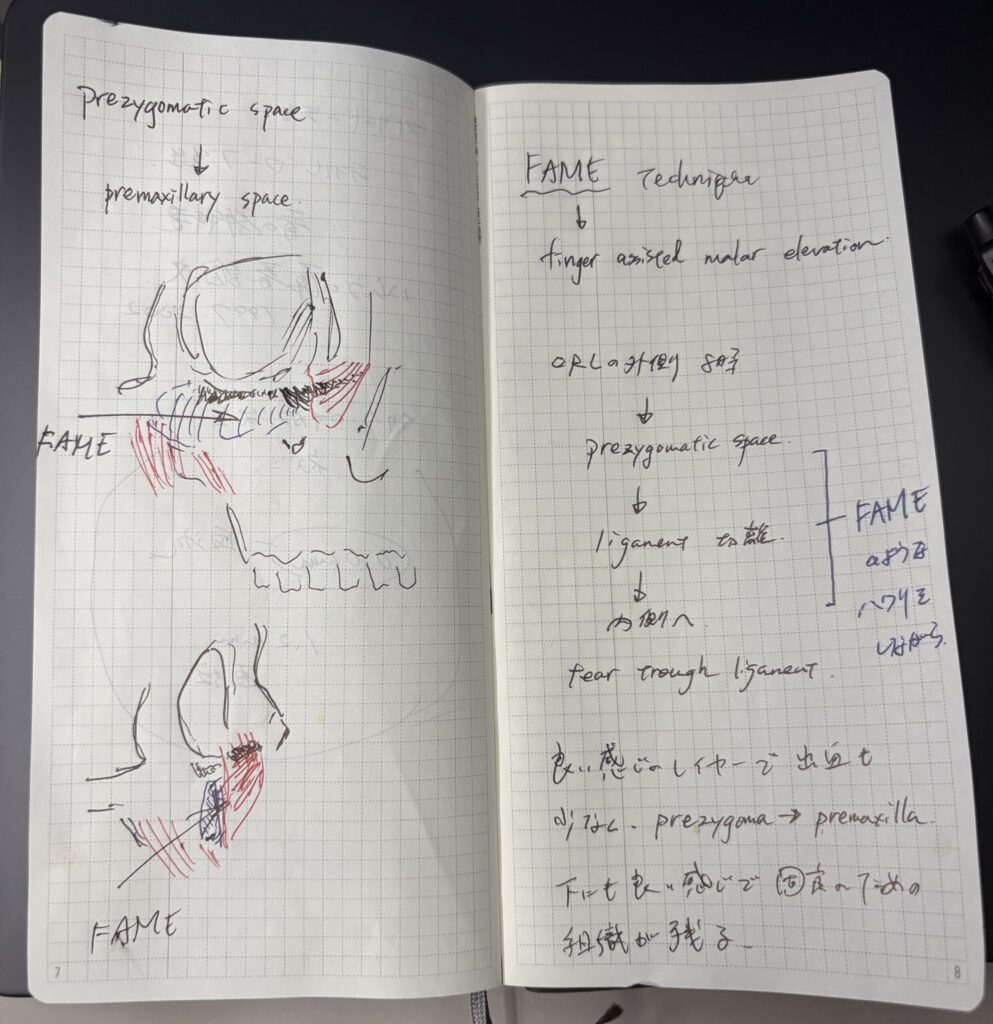 prezygomatic space
↓
premaxillary space.
FAME
FAME
7
FAME Technique
↓
finger assisted malar elevation.
ORLの外側
↓
prezygomatic space.
↓
ligament 切離.
↓
内側へ
tear trough ligament.
FAME
のような
ハクリを
しながら
良い感じのレイヤーで 出血も
少なく. prezygoma → premaxilla.
下にも良い感じで 固定のための
組織が残る
8